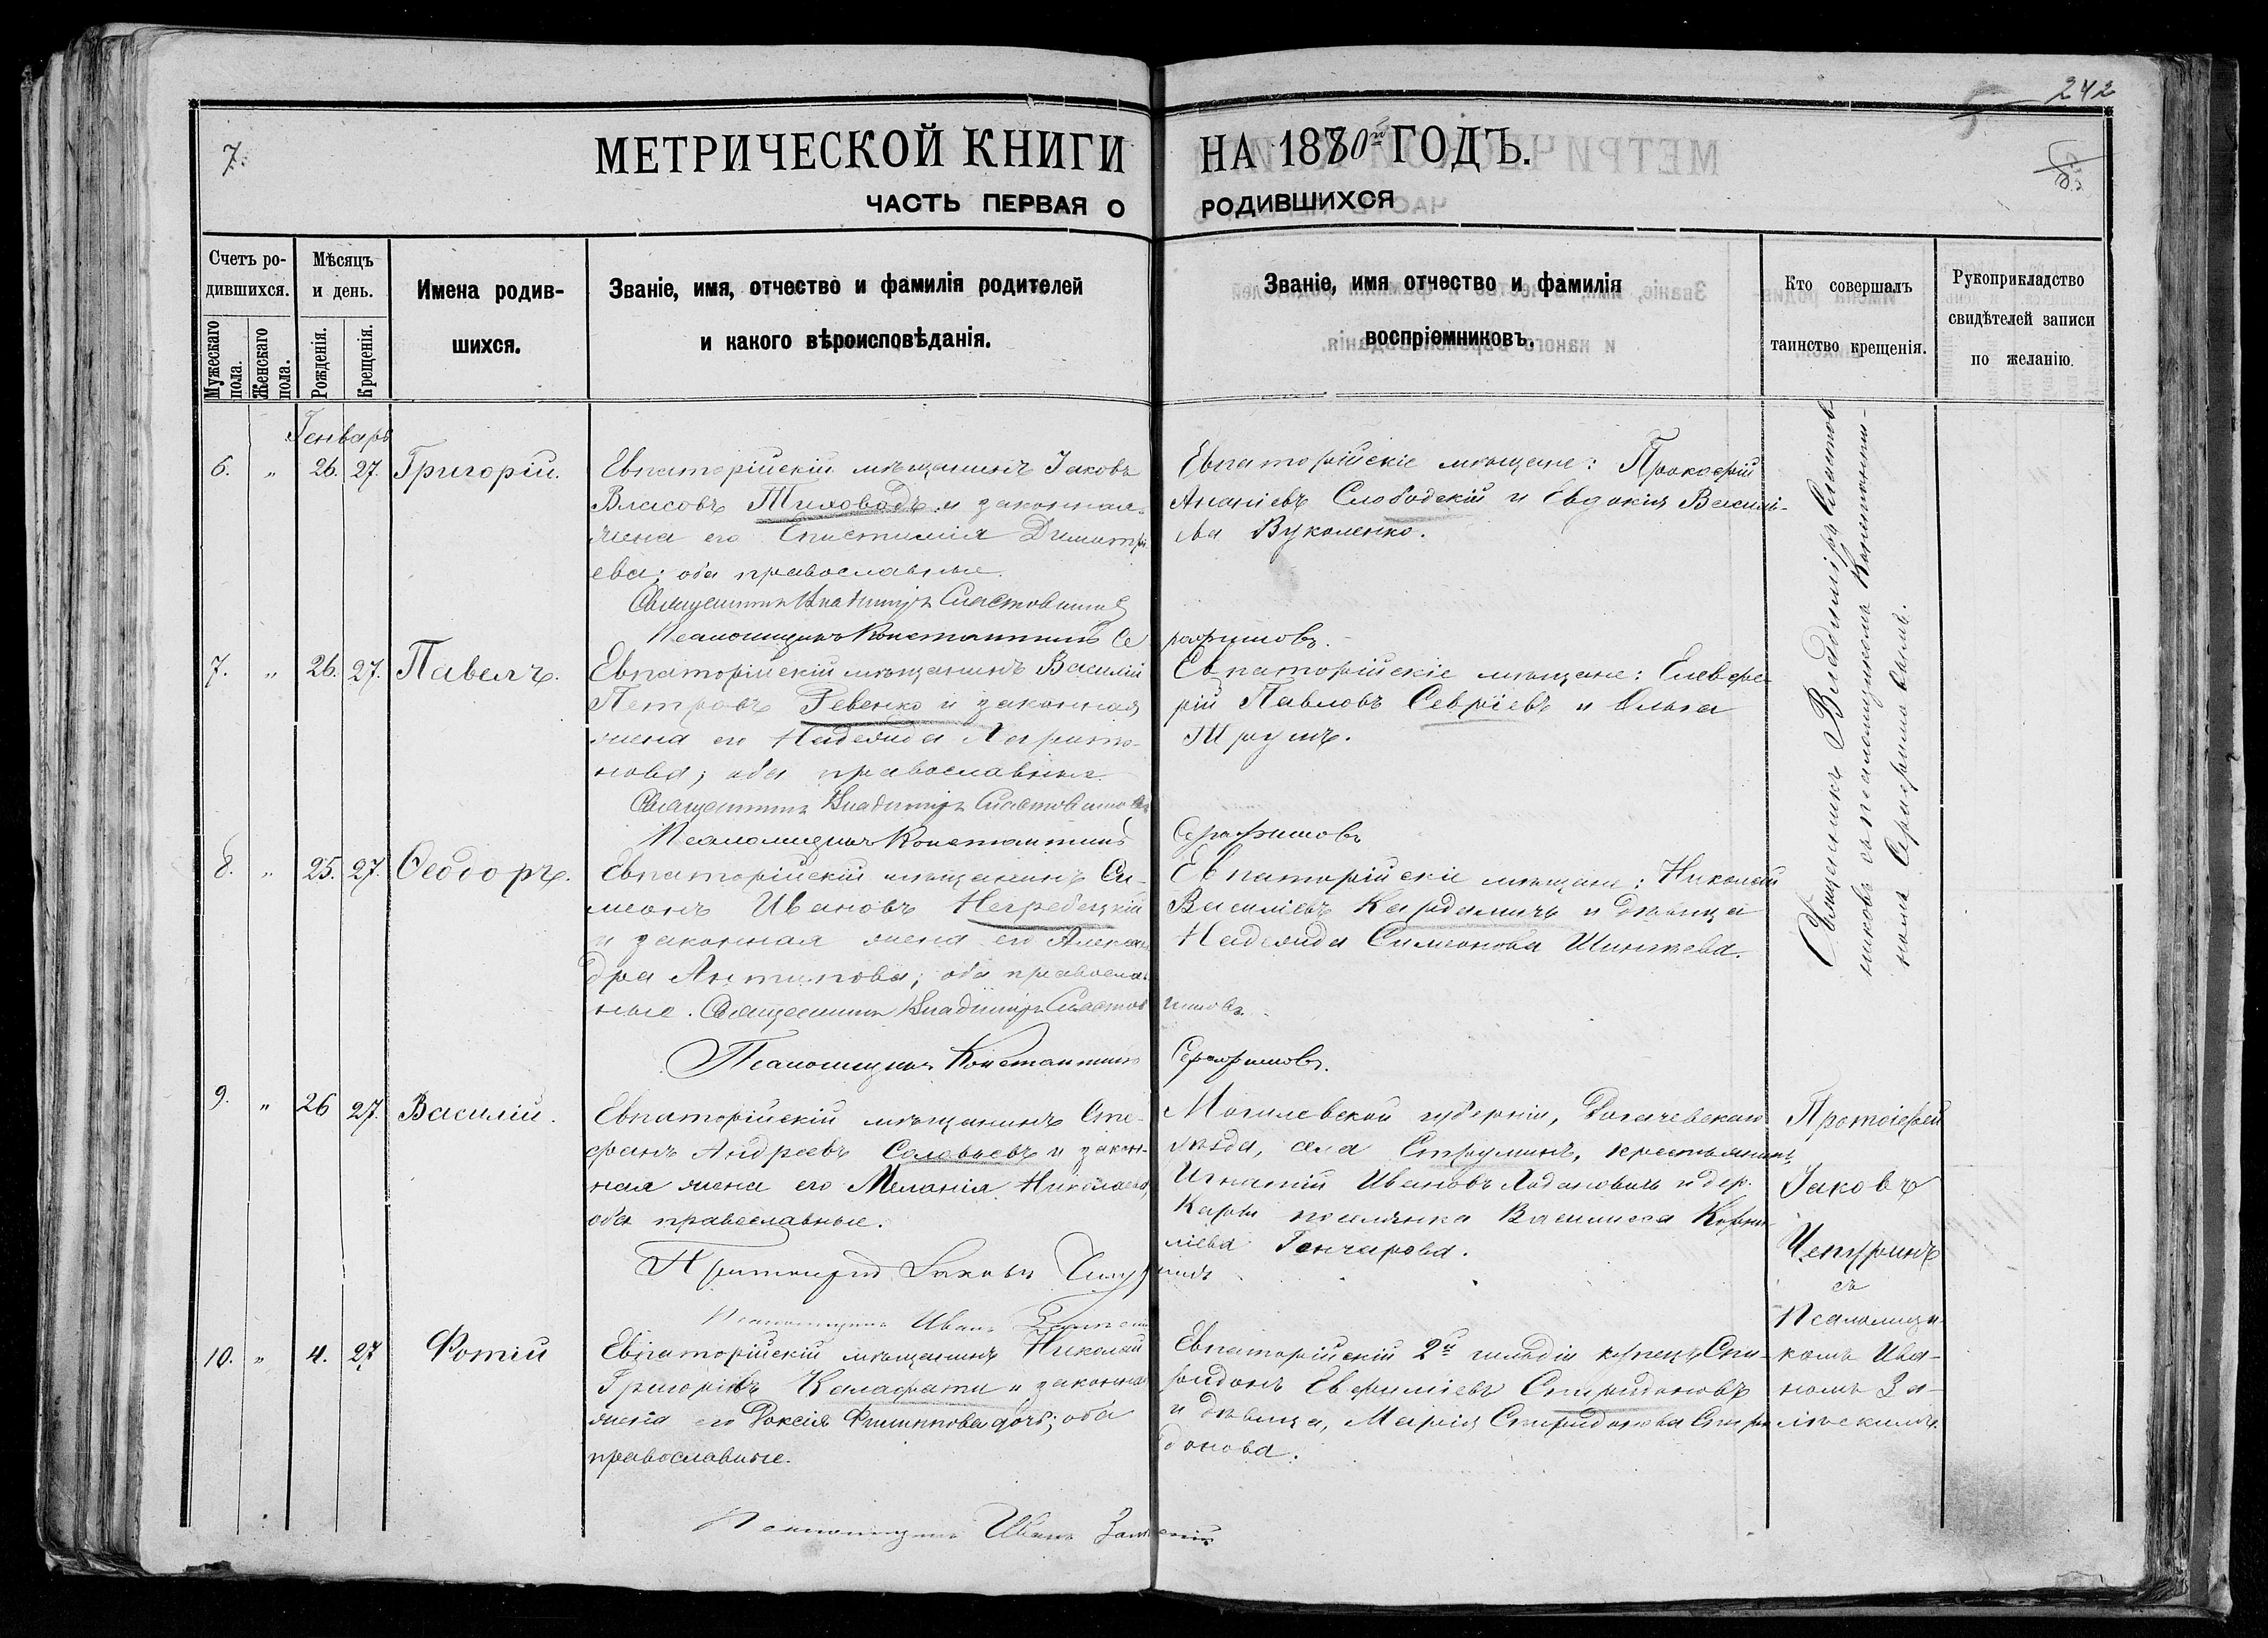 242
5
7.
МЕТРИЧЕСКОЙ КНИГИ НА 1880й ГОДЪ.
ЧАСТЬ ПЕРВАЯ О РОДИВШИХСЯ
Счетъ ро-
дившихся.
Мужескаго пола.
Женскаго пола.
Мѣсяцъ
и день.
Рожденія.
Крещенія.
Имена родив-
шихся.
Званіе, имя, отчество и фамилія родителей
и какого вѣроисповѣданія.
Званіе, имя отчество и фамилія
воспріемниковъ.
Кто совершалъ
таинство крещенія.
Рукоприкладство
свидѣтелей записи
по желанію.
Генварь
6. „ 26. 27. Григорій.
Евпаторійскій мѣщанинъ Іаковъ
Власовъ Тиховодъ и законная
жена его Епистимія Димитрі
ева; оба православные.
Священникъ Владимиръ Сластовников
Псаломщикъ Константинъ Се рафимовъ.
Евпаторійскіе мѣщане: Прокофій
Ананіевъ Слободскій и Евдокія Василь-
ева Вуколенко.
Священникъ Владиміръ Сластов-
никовъ съ псаломщикомъ Константи-
номъ Серафимовымъ.
7. „ 26. 27. Павелъ.
Евпаторійскій мѣщанинъ Василій
Петровъ Ревенко и законная
жена его Надежда Харито-
нова; оба православные.
Священникъ Владимиръ Сластовников
Псаломщикъ Константинъ Серафимовъ
Евпаторійскіе мѣщане: Елевфе
рій Павловъ Севріевъ и Ольга
8. „ 25. 27. Ѳеодоръ.
Евпаторійскій мѣщанинъ Си-
меонъ Ивановъ Негребецкій
и законная жена его Алексан
дра Антипова; оба православ
ные. Священникъ Владимиръ Сластов никовъ
Псаломщикъ Константинъ Серафимовъ.
Евпаторійскіе мѣщане: Николай
Василіевъ и дѣвица
Надежда Симеонова
9. „ 26 27. Василій.
Евпаторійскій мѣщанинъ Сте-
фанъ Андреевъ Соловьевъ и закон-
ная жена его Меланія Николаева,
оба православные.
Протоіерей Іаковъ Чепуринъ
Псаломщикъ Иванъ
Могилевской губерніи, Рогачевскаго
уѣзда, села Струминъ, крестьянинъ
Игнатій Ивановъ и дер.
поселянка Василиса Корни
ліева Гончарова.
Протоіерей
Іаковъ
Чепуринъ
съ
Псаломщи-
комъ Ива-
номъ За-
10. „ 4. 27 Фотій
Евпаторійскій мѣщанинъ Николай
Григоріевъ Калафати и законная
жена его Роксія Филиппова дочь; оба
православные.
Псаломщикъ Иванъ
Евпаторійскій 2й гильдіи купецъ Спи-
ридонъ Евфиміевъ Спиридоновъ
и дѣвица, Марія Спиридонова Спири
донова.